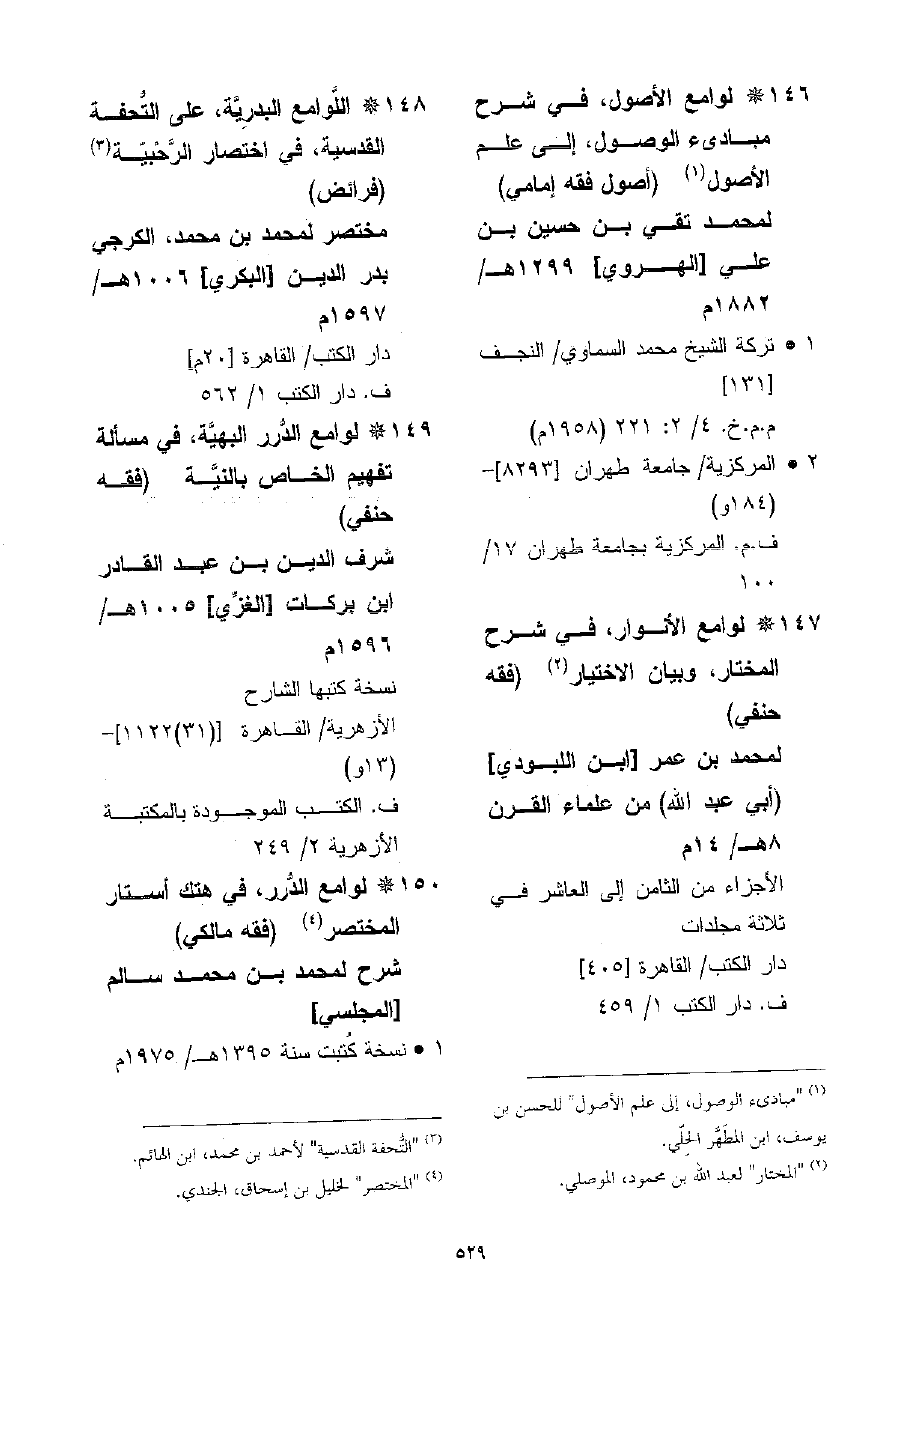 ١٤٦ * لوامع الأصول، في شرح
مبادىء الوصول، إلى علم
الأصول(١) (أصول فقه إمامي)
لمحمد تقي بن حسين بن
علي [الهروي] ١٢٩٩هـ/
١٨٨٢م
١ • تركة الشيخ محمد السماوي/ النجف
[١٣١]
م.م.خ. ٤/ ٢: ٢٢١ (١٩٥٨م)
٢ • المركزية/ جامعة طهران [٨٢٩٣]-
(١٨٤و)
ف.م. المركزية بجامعة طهران ١٧/
١٠٠
١٤٧ * لوامع الأنوار، في شرح
المختار، وبيان الاختيار(٢) (فقه
حنفي)
لمحمد بن عمر [ابن اللبودي]
(أبي عبد الله) من علماء القرن
٨هـ/ ١٤م
الأجزاء من الثامن إلى العاشر في
ثلاثة مجلدات
دار الكتب/ القاهرة [٤٠٥]
ف. دار الكتب ١/ ٤٥٩
(١) "مبادىء الوصول، إلى علم الأصول" للحسن بن
يوسف، ابن المطَهَّر الحلّي.
(٢) "المختار" لعبد الله بن محمود، الموصلي.
١٤٨ * اللَّوامع البدريَّة، على التُّحفة
القدسية، في اختصار الرَّحْبيّة(٣)
(فرائض)
مختصر لمحمد بن محمد، الكرجي
بدر الدين [البكري] ١٠٠٦هـ/
١٥٩٧م
دار الكتب/ القاهرة [٢٠م]
ف. دار الكتب ١/ ٥٦٢
١٤٩ * لوامع الدُّرر البهيَّة، في مسألة
تفهيم الخاص بالنيَّة (فقه
حنفي)
شرف الدين بن عبد القادر
ابن بركات [الغزِّي] ١٠٠٥هـ/
١٥٩٦م
نسخة كتبها الشارح
الأزهرية/ القاهرة [(٣١)١١٢٢]-
(١٣و)
ف. الكتب الموجودة بالمكتبة
الأزهرية ٢/ ٢٤٩
١٥٠ * لوامع الدُّرر، في هتك أستار
المختصر(٤) (فقه مالكي)
شرح لمحمد بن محمد سالم
[المجلسي]
١ • نسخة كُتبت سنة ١٣٩٥هـ/ ١٩٧٥م
(٣) "التُّحفة القدسية" لأحمد بن محمد، ابن الهائم.
(٤) "المختصر" لخليل بن إسحاق، الجندي.
٥٢٩